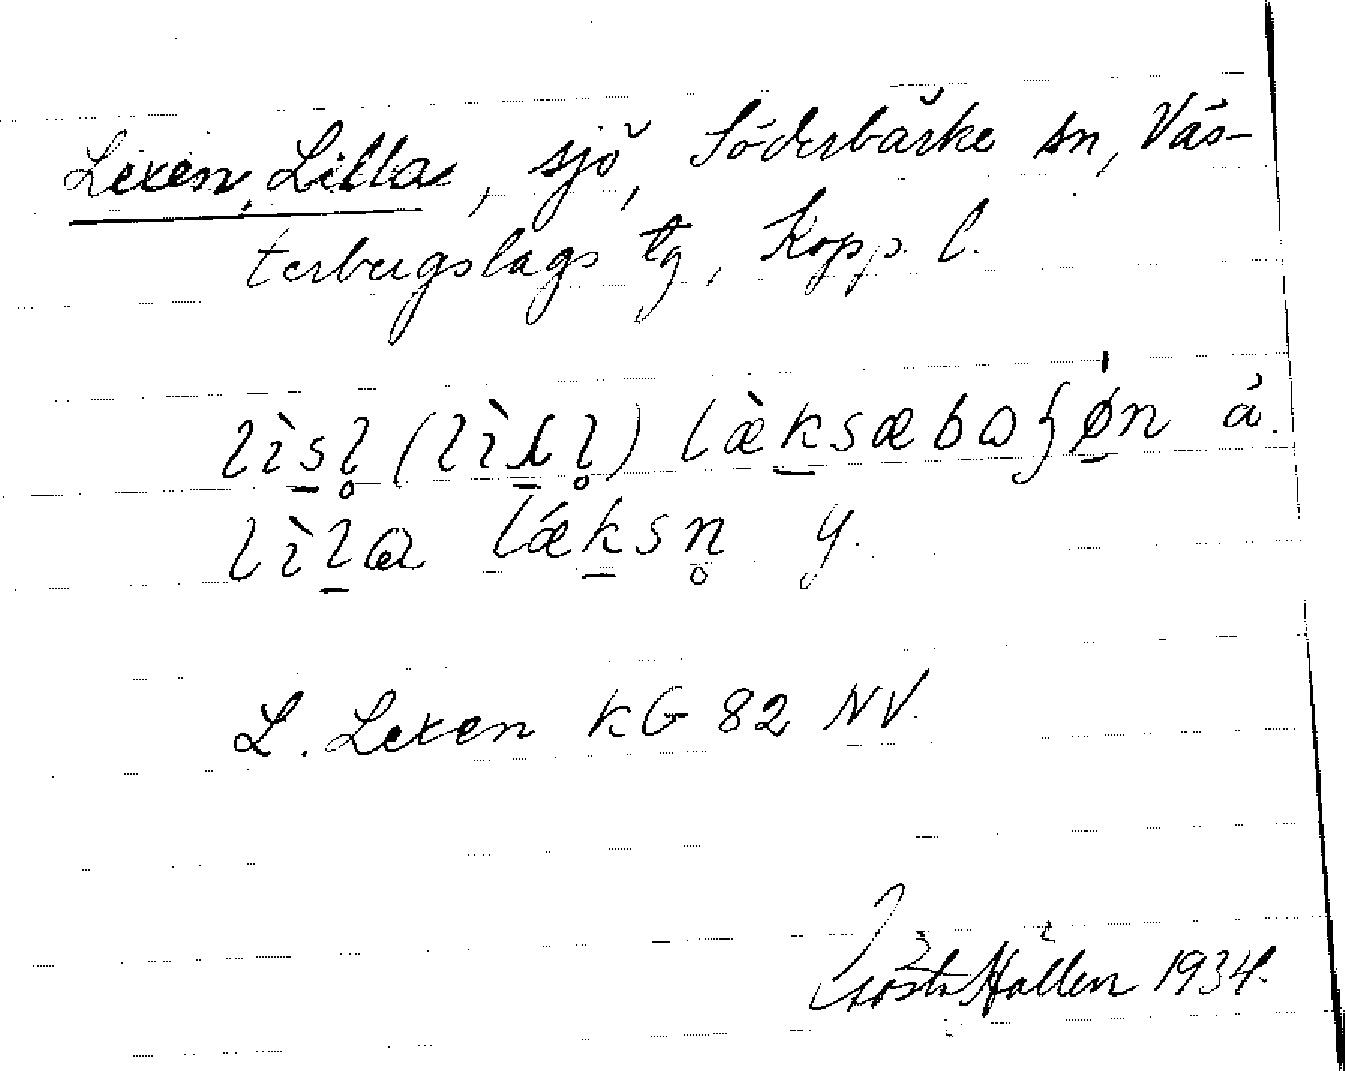 Lexen, Lilla, sjö, Söderbärke sn, Väs-
terbergslags tg, Kopp. l.
lìsl̥ (lìʎl̥) læ̀ksæboʃø̀n ä.
lìla lǽksn̥ y.
L. Lexen KG 82 NV.
Gösta Hällen 1934.